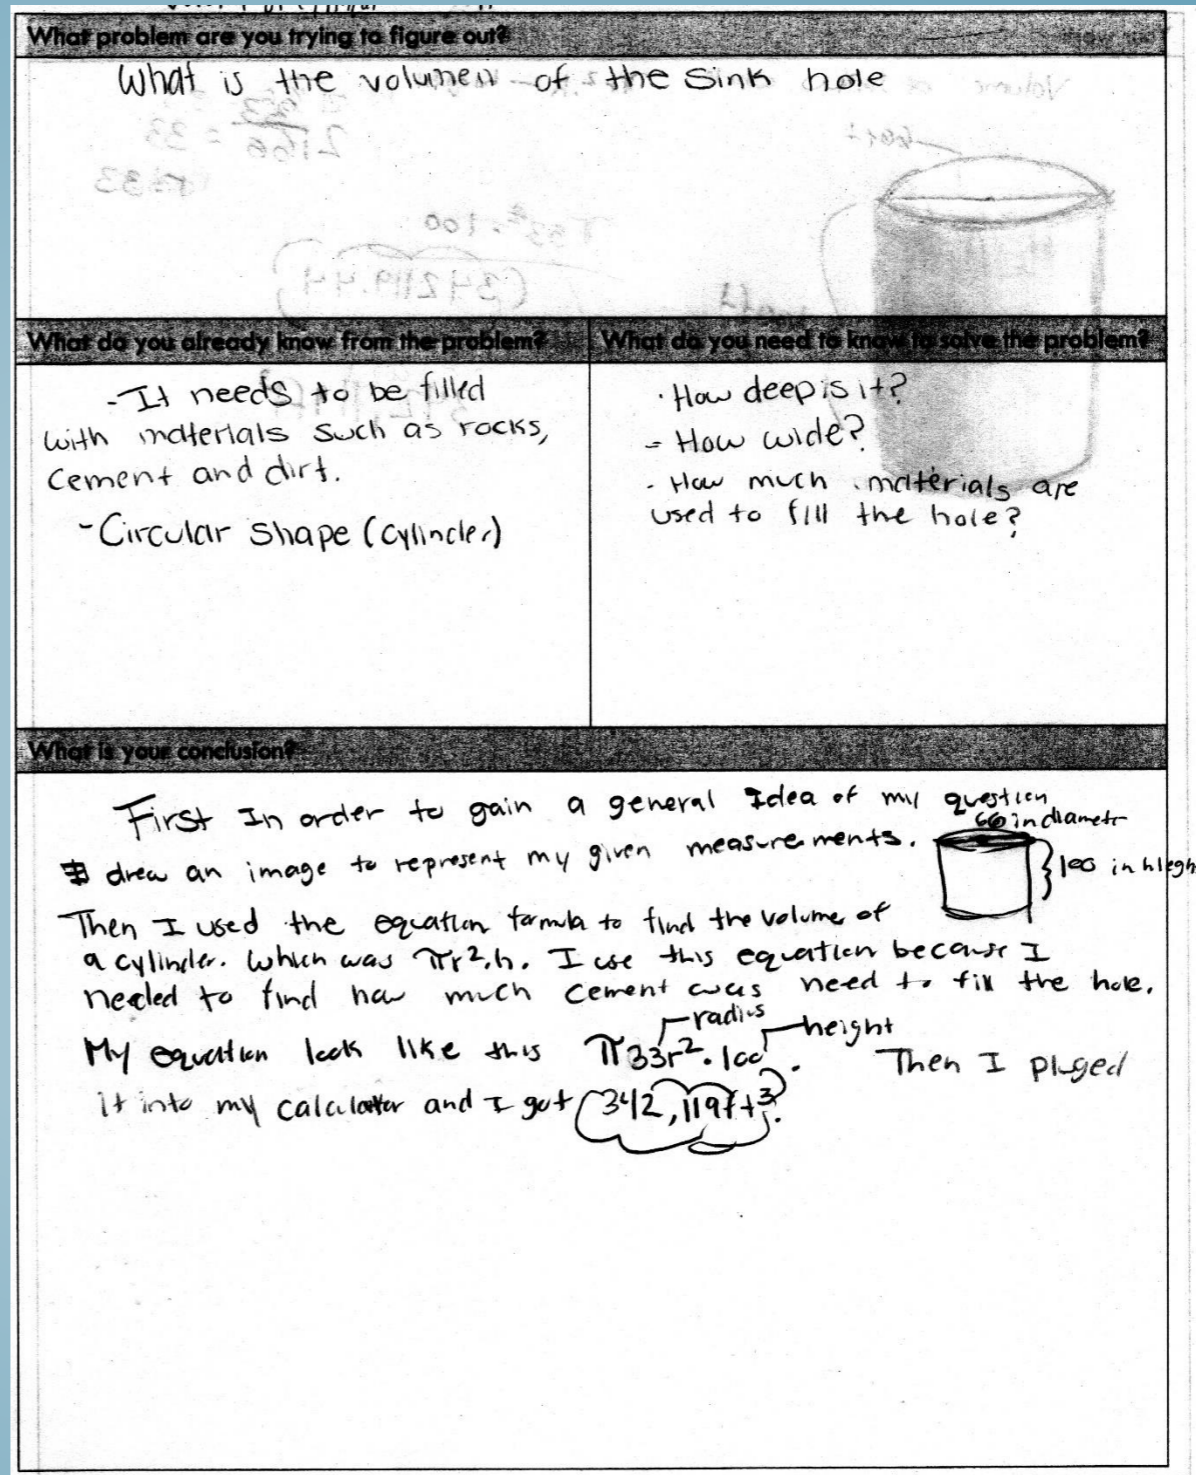 What problem are you trying to figure out?
What is the volumen of the Sink hole
What do you already know from the problem?
-It needs to be filled
with materials such as rocks,
Cement and dirt.
-Circular Shape (cylinder)
What do you need to know to solve the problem?
· How deep is it?
- How wide?
- How much materials are
used to fill the hole?
What is your conclusion?
First In order to gain a general Idea of my question
I drew an image to represent my given measurements.
66 in diametr
100 in hiegh
Then I used the equation formula to find the volume of
a cylinder. Which was πr².h. I use this equation because I
needed to find how much cement was need to fill the hole.
radius
height
My equation look like this π33r².100. Then I pluged
it into my calculator and I got 342,119ft³.